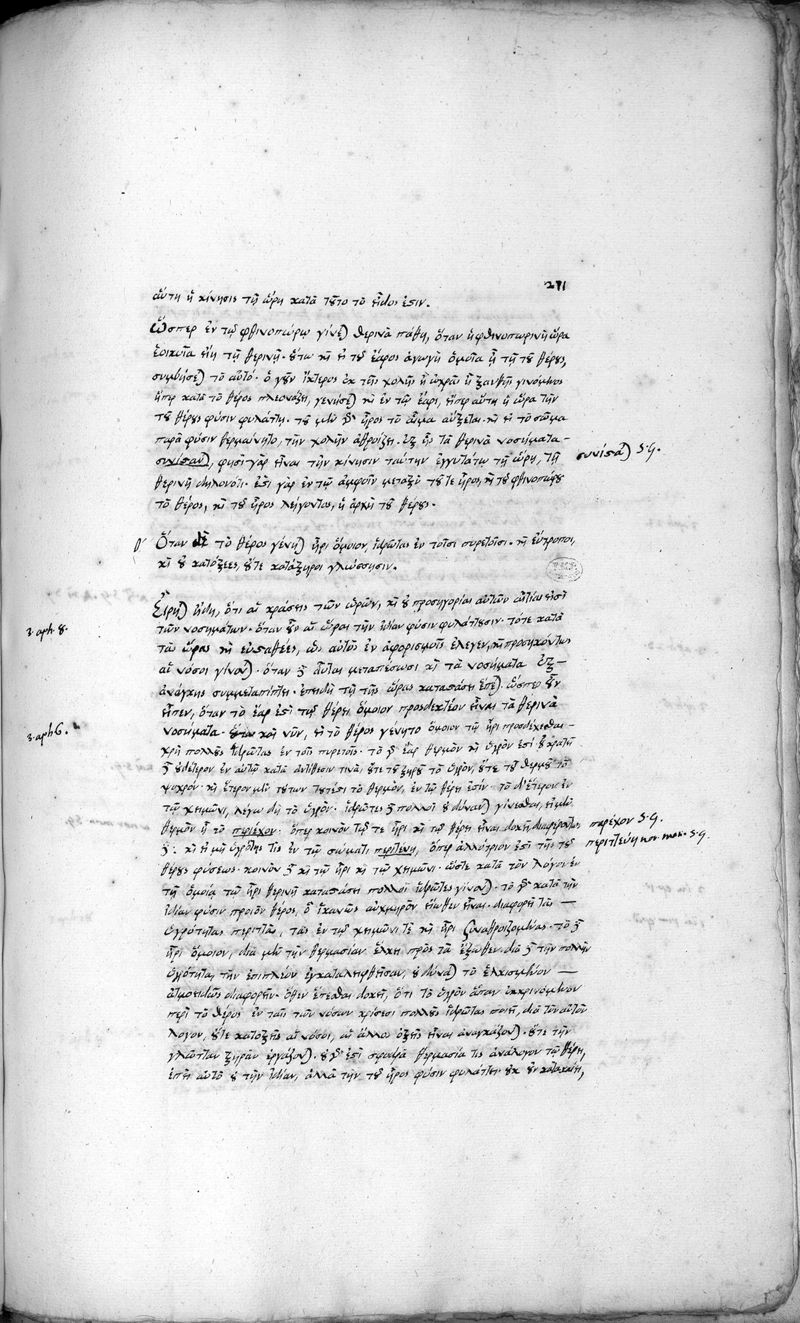 271
αὕτη ἡ κίνησις τῇ ὥρῃ κατὰ τοῦτο τὸ εἶδός ἐστιν.
Ὥσπερ ἐν τῷ φθινοπώρῳ γίνεται θερινὰ πάθη, ὅταν ἡ φθινοπωρινὴ ὥρα
ἐοικυῖα εἴη τῇ θερινῇ. οὕτω καὶ εἰ τοῦ ἔαρος ἀγωγὴ ὁμοία ᾖ τῇ τοῦ θέρους,
συμβήσεται τὸ αὐτό. ὁ γοῦν ἴκτερος ἐκ τῆς χολῆς ἢ ὠχρᾶς ἢ ξανθῆς γινόμενος
εἴπερ κατὰ τὸ θέρος πλεονάζει, γενήσεται καὶ ἐν τῷ ἔαρι, εἴπερ αὕτη ἡ ὥρα τὴν
τοῦ θέρους φύσιν φυλάττει. τοῦ μὲν γὰρ ἦρος τὸ αἷμα αὔξεται. καὶ εἰ τὸ σῶμα
παρὰ φύσιν θερμαίνοιτο, τὴν χολὴν ἀθροίζει. ἐξ ὧν τὰ θερινὰ νοσήματα
συνίσταται, φησὶ γὰρ εἶναι τὴν κίνησιν ταύτην ἐγγυτάτω τῇ ὥρῃ, τῇ
συνίσται S.G.
θερινῇ δηλονότι. ἐστὶ γὰρ ἐν τῷ ἀμφοῖν μεταξὺ τοῦ τε ἦρος, καὶ τοῦ φθινοπώρου
τὸ θέρος, καὶ τοῦ ἦρος λήγοντος, ἡ ἀρχὴ τοῦ θέρους.
Ὅταν δὲ τὸ θέρος γένηται ἦρι ὅμοιον, ἱδρῶτας ἐν τοῖσι πυρετοῖσι. καὶ εὔτροποι,
καὶ οὐ κατόξεες, οὔτε κατάξηροι γλώσσῃσιν.
Εἴρηται ἤδη, ὅτι αἱ κράσεις τῶν ὡρῶν, καὶ οὐ προσηγορίαι αὐτῶν αἴτιαί εἰσι
3 aph. 8.
τῶν νοσημάτων. ὅταν οὖν αἱ ὧραι τὴν ἰδίαν φύσιν φυλάττουσιν. τότε κατὰ
τὰς ὥρας καὶ εὐσταθέες, ὡς αὐτὸς ἐν ἀφορισμοῖς ἔλεγεν, καὶ προσηκόντως
αἱ νόσοι γίνονται. ὅταν δὲ αὗται μεταπέσωσι καὶ τὰ νοσήματα ἐξ
ἀνάγκης συμμεταπίπτει. ἐπειδὴ τῇ τῆς ὥρας καταστάσει ἕπεται. ὥσπερ οὖν
εἶπεν, ὅταν τὸ ἔαρ ἐστὶ τῷ θέρει ὅμοιον προσδεκτέον εἶναι τὰ θερινὰ
3. aph 6.
νοσήματα. οὕτω καὶ νῦν, εἰ τὸ θέρος γένηται ὅμοιον τῷ ἦρι προσδέχεσθαι
χρὴ πολλοὺς ἱδρῶτας ἐν τοῖς πυρετοῖς. τὸ γὰρ ἔαρ θερμὸν καὶ ὑγρόν ἐστι. οὐ κρατεῖ
δὲ οὐδέτερον ἐν αὐτῷ κατὰ ἀντίθεσιν τινὰ, οὔτε τοῦ ξηροῦ τὸ ὑγρὸν, οὔτε τοῦ θερμοῦ τὸ
ψυχρόν. καὶ ἕτερον μὲν τούτων τουτέστι τὸ θερμὸν, ἐν τῷ θέρει ἐστίν. τὸ δ' ἕτερον ἐν
τῷ χειμῶνι, λέγω δὴ τὸ ὑγρὸν. ἱδρῶτες δὲ πολλοὶ οὐ δύνανται γίνεσθαι, εἰ μὴ
θερμὸν ᾖ τὸ περιέχον. ὅπερ κοινὸν τῷ τε ἦρι καὶ τῷ θέρει εἶναι δοκεῖ
παρέχον S.G.
καὶ εἰ μὴ ὑγρότης τις ἐν τῷ σώματι περιττεύῃ, ὅπερ ἀλλότριον ἐστὶ τῆς τοῦ
περιττεύη S.G.
θέρους φύσεως. κοινὸν δὲ καὶ τῷ ἦρι καὶ τῷ χειμῶνι. ὥστε κατὰ τὸν λόγον ἐν
τῇ ὁμοίᾳ τῷ ἦρι θερινῇ καταστάσει πολλοὶ ἱδρῶτες γίνονται. τὸ γὰρ κατὰ τὴν
ἰδίαν φύσιν προϊὸν θέρος, ὃ ἱκανῶς αὐχμηρὸν εἴωθεν εἶναι. διαφορεῖ τὰς
ὑγρότητας περιττὰς, τὰς ἐν τῷ χειμῶνί τε καὶ ἦρι συναθροιζομένας. τὸ δὲ
ἦρι ὅμοιον, διὰ μὲν τὴν θερμασίαν ἕλκει πρὸς τὰ ἔξωθεν. διὰ δὲ τὴν πολλὴν
ὑγρότητα, τὴν ἐπιπλέον ἐγκαταληφθεῖσαν, οὐ δύναται τὸ ἑλκόμενον
ἀτμοειδῶς διαφορεῖν. ὅθεν ἕπεσθαι δοκεῖ, ὅτι τὸ ὑγρὸν ἅπαν ἐκκρινόμενον
περὶ τὸ θέρος ἐν ταῖς τῶν νόσων κρίσεσι πολλοὺς ἱδρῶτας ποιεῖ, διὰ τὸν αὐτὸν
λόγον, οὔτε κατοξεῖς αἱ νόσοι, ὡς ἄλλως ὀξεῖς εἶναι ἀναγκάζονται. οὔτε τὴν
γλῶτταν ξηρὰν ἐργάζονται. οὐ γὰρ ἐστὶ σφοδρὰ θερμασία τις ἀνάλογον τῷ θέρει,
ἐπεὶ αὐτὸ οὐ τὴν ἰδίαν, ἀλλὰ τὴν τοῦ ἦρος φύσιν φυλάττει. οὐκ οὖν κατακαίει,